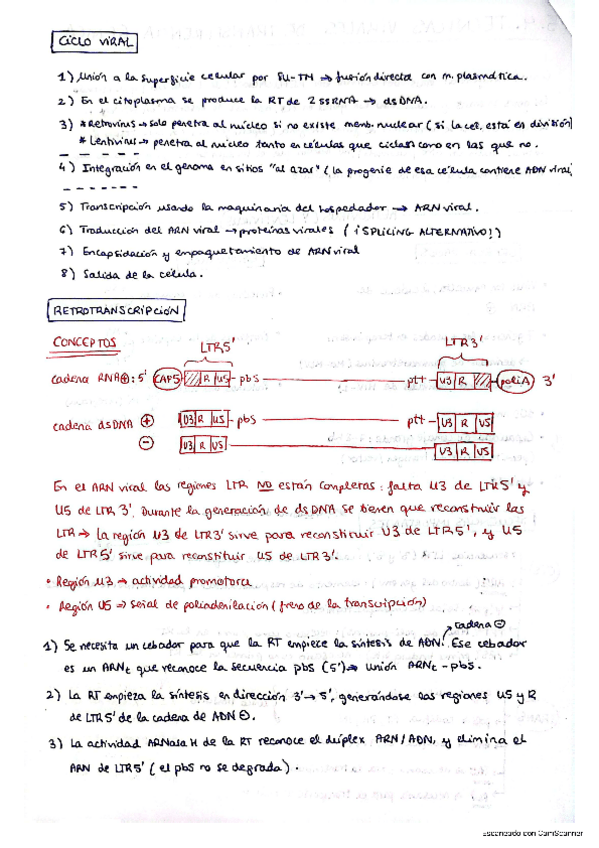 CICLO VIRAL
1) Unión a la superficie celular por SU-TM → fusión directa con m. plasmática.
2) En el citoplasma se produce la RT de 2 ssRNA → dsDNA.
3) * Retrovirus → solo penetra al núcleo si no existe memb. nuclear (si la cel. está en división)
* Lentivirus → penetra al núcleo tanto en células que ciclan como en las que no.
4) Integración en el genoma en sitios "al azar" (la progenie de esa célula contiene ADN viral
5) Transcripción usando la maquinaria del hospedador → ARN viral.
6) Traducción del ARN viral → proteínas virales (¡SPLICING ALTERNATIVO!)
7) Encapsidación y empaquetamiento de ARN viral
8) Salida de la célula.
RETROTRANSCRIPCIÓN
CONCEPTOS
LTR5' LTR3'
cadena RNA⊕: 5' CAP5 R U5 - pbs ptt - U3 R poliA 3'
cadena dsDNA ⊕ U3 R U5 - pbs ptt - U3 R U5
⊖ U3 R U5 U3 R U5
En el ARN viral las regiones LTR NO están completas: falta U3 de LTR5' y
U5 de LTR 3'. Durante la generación de dsDNA se tienen que reconstruir las
LTR → la región U3 de LTR3' sirve para reconstituir U3 de LTR5', y U5
de LTR5' sirve para reconstituir U5 de LTR3'.
• Región U3 → actividad promotora
• Región U5 → señal de poliadenilación (freno de la transcripción)
cadena ⊖
1) Se necesita un cebador para que la RT empiece la síntesis de ADN. Ese cebador
es un ARNt que reconoce la secuencia pbs (5') → unión ARNt - pbs.
2) La RT empieza la síntesis en dirección 3' → 5', generándose las regiones U5 y R
de LTR5' de la cadena de ADN ⊖.
3) La actividad ARNasa H de la RT reconoce el dúplex ARN/ADN, y elimina el
ARN de LTR5' (el pbs no se degrada).
Escaneado con CamScanner